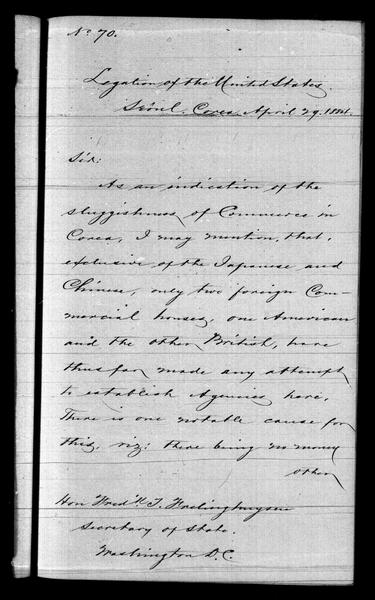 No 70.
Legation of the United States.
Séoul, Corea, April 29. 1884.
Sir:
As an indication of the
sluggishness of Commerce in
Corea, I may mention, that,
exclusive of the Japanese and
Chinese, only two foreign Com-
mercial houses, one American
and the other British, have
thus far made any attempt
to establish Agencies here.
There is one notable cause for
this, viz: there being no money
other
Hon Fred'k T. Frelinghuysen
Secretary of State.
Washington D.C.